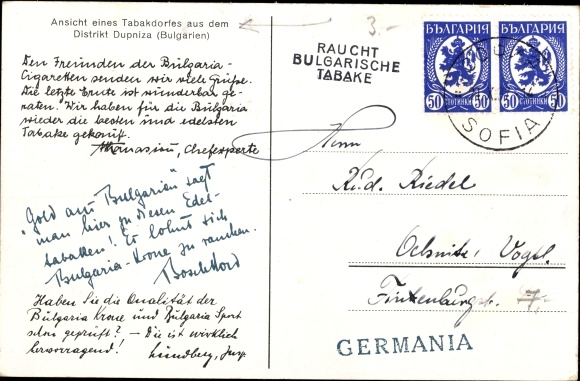 Ansicht eines Tabakdorfes aus dem
Distrikt Dupniza (Bulgarien)
3.-
RAUCHT
BULGARISCHE
TABAKE
БЪЛГАРИЯ
50 СТОТИНКИ 50
БЪЛГАРИЯ
50 СТОТИНКИ 50
SOFIA
Den Freunden der Bulgaria-
Cigaretten senden wir viele Grüsse.
Die letzte Ernte ist wunderbar ge-
raten. Wir haben für die Bulgaria
wieder die besten und edelsten
Tabake gekauft.
Athanasiou, Chefexperte
"Gold aus Bulgarien" sagt
man hier zu diesen Edel-
tabaken! Es lohnt sich
Bulgaria-Krone zu rauchen.
Haben Sie die Qualität der
Bulgaria Krone und Bulgaria Sport
schon geprüft? – Die ist wirklich
hervorragend!
Lundberg,
Herrn
Rud. Riedel
Oelsnitz, Vogtl.
Finkenburgstr. 7.-
GERMANIA